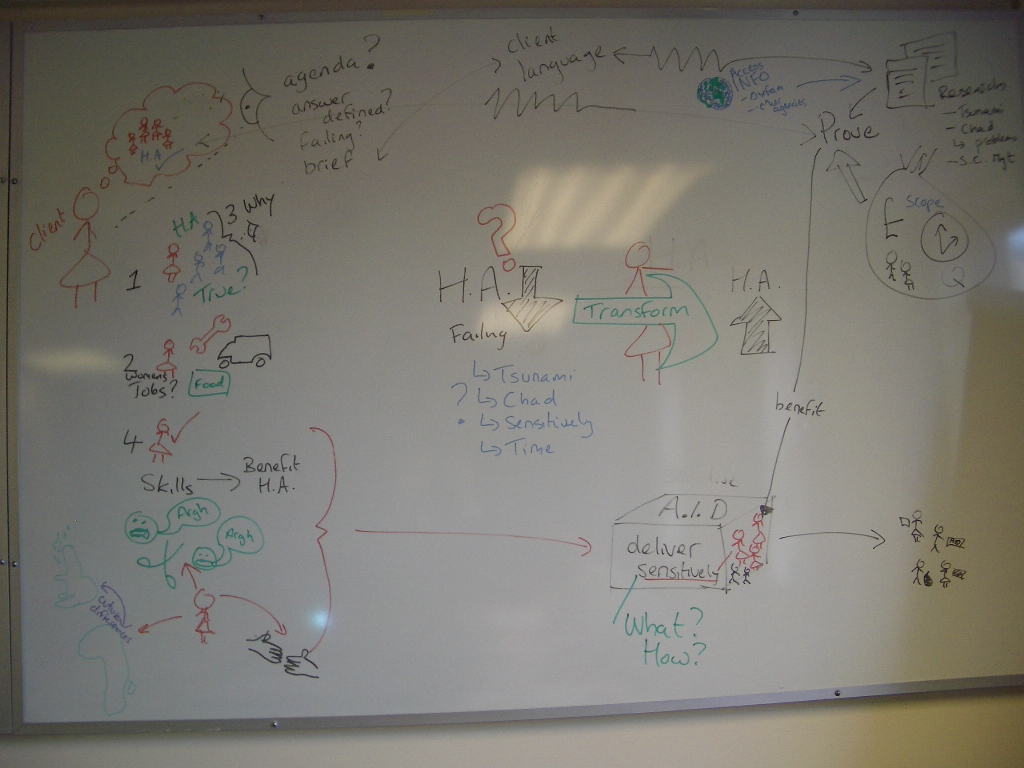 agenda?
answer
defined?
failing?
brief
client
language
Access
INFO
- Oxfam
- other
agencies
Research
- Tsunami
- Chad
↳ problems
- S.C. Mgt
Prove
£
Scope
Q
Client
H.A.
1
HA
3 Why
True?
2
Womens
Jobs?
Food
4
Skills → Benefit
H.A.
Argh
Argh
cultural
differences
?
H.A.
Failing
↳ Tsunami
? ↳ Chad
↳ Sensitively
↳ Time
HA
Transform
H.A.
benefit
A.I.D
deliver
sensitively
What?
How?